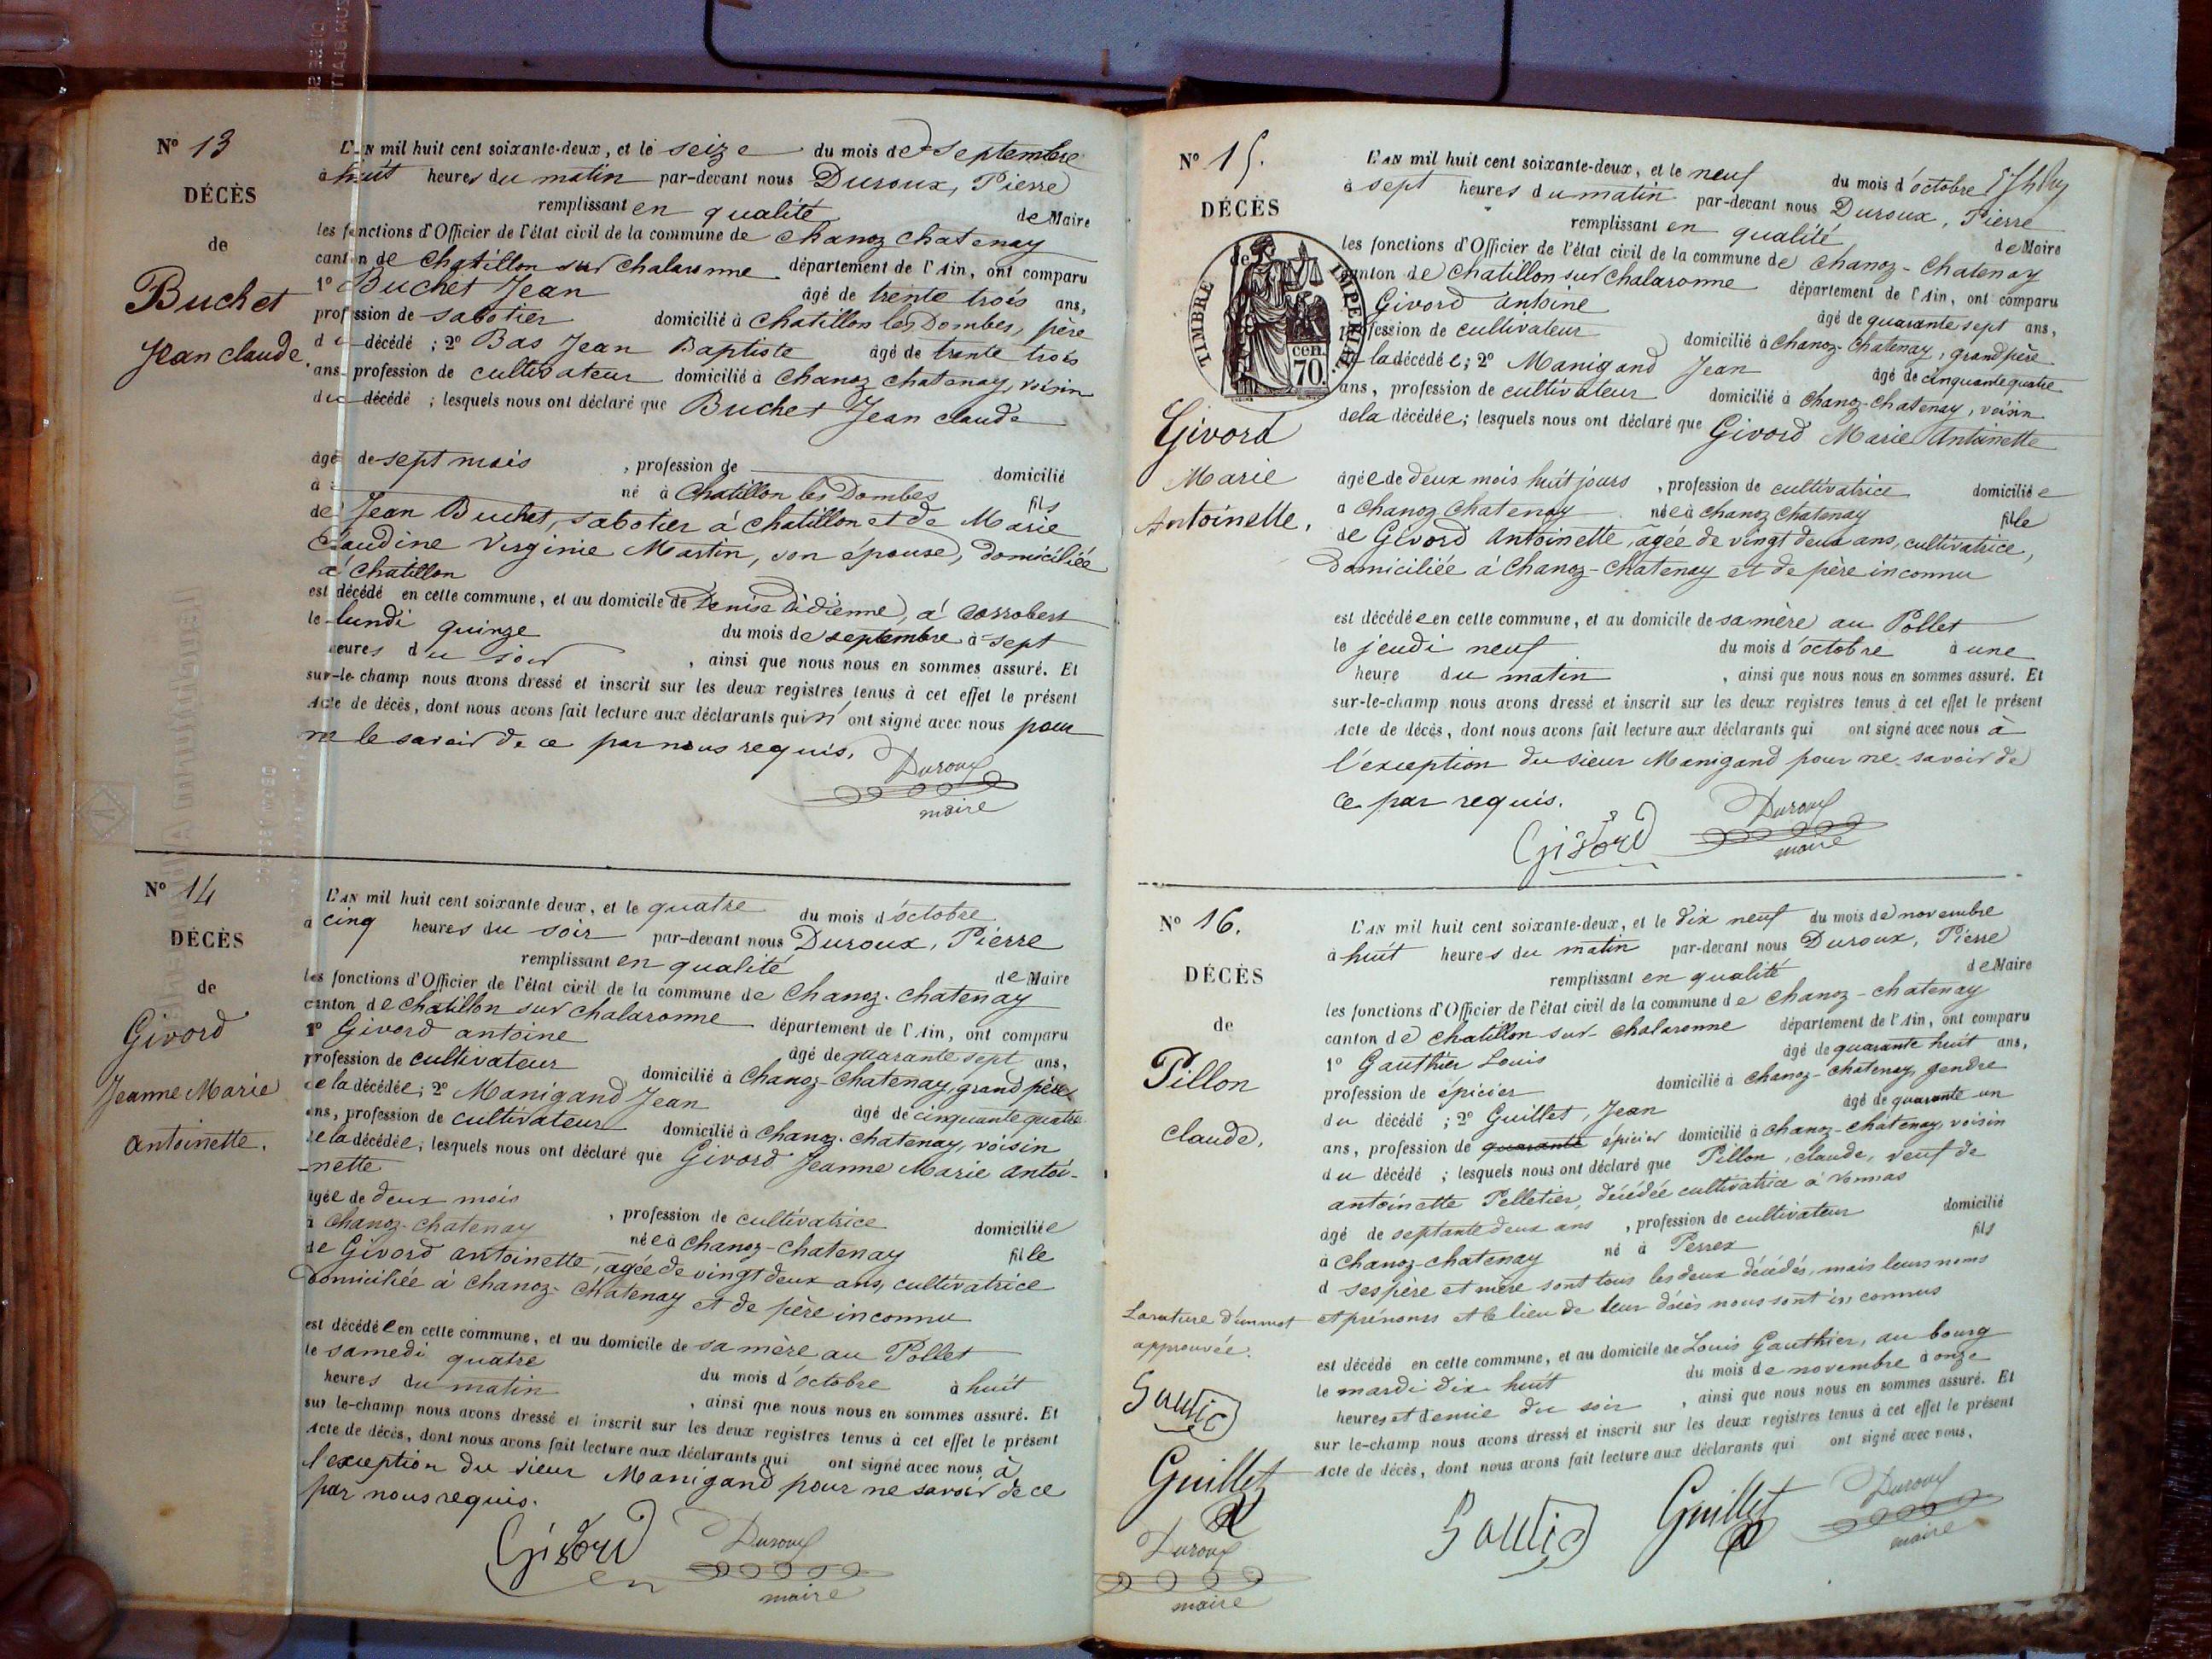 N° 13
DÉCÈS
de
Buchet
Jean claude.
L'AN mil huit cent soixante-deux, et le seize du mois de septembre
à huit heures du matin par-devant nous Duroux, Pierre
remplissant en qualité de Maire
les fonctions d'Officier de l'état civil de la commune de Chanoz chatenay
canton de Chatillon sur chalaronne département de l'Ain, ont comparu
1° Buchet Jean âgé de trente trois ans,
profession de sabotier domicilié à Chatillon les Dombes, père
du décédé ; 2° Bas Jean Baptiste âgé de trente trois
ans profession de cultivateur domicilié à Chanoz chatenay, voisin
du décédé ; lesquels nous ont déclaré que Buchet Jean claude
âgé de sept mois , profession de domicilié
à né à Chatillon les Dombes fils
de Jean Buchet, sabotier à chatillon et de Marie
Claudine Virginie Martin, son épouse, domiciliée
à Chatillon
est décédé en cette commune, et au domicile de Denise à
le lundi quinze du mois de septembre à sept
heures du soir , ainsi que nous nous en sommes assuré. Et
sur-le-champ nous avons dressé et inscrit sur les deux registres tenus à cet effet le présent
Acte de décès, dont nous avons fait lecture aux déclarants qui n'ont signé avec nous pour
ne le savoir de ce par nous requis.
Duroux
maire
N° 14
DÉCÈS
de
Givord
Jeanne Marie
antoinette.
L'AN mil huit cent soixante deux, et le quatre du mois d'octobre
à cinq heures du soir par-devant nous Duroux, Pierre
remplissant en qualité de Maire
les fonctions d'Officier de l'état civil de la commune de Chanoz-chatenay
canton de Chatillon sur chalaronne département de l'Ain, ont comparu
1° Givord antoine âgé de quarante sept ans,
profession de cultivateur domicilié à Chanoz-chatenay, grand père
de la décédée; 2° Manigand Jean âgé de cinquante quatre
ans, profession de cultivateur domicilié à Chanoz-chatenay, voisin
de la décédée; lesquels nous ont déclaré que Givord Jeanne Marie antoi-
-nette
âgée de deux mois , profession de cultivatrice domiciliée
à Chanoz-chatenay née à Chanoz-chatenay fille
de Givord antoinette, agée de vingt deux ans, cultivatrice
domiciliée à Chanoz-Chatenay et de père inconnu
est décédée en cette commune, et au domicile de sa mère au Pollet
le samedi quatre du mois d'octobre à huit
heures du matin , ainsi que nous nous en sommes assuré. Et
sur le-champ nous avons dressé et inscrit sur les deux registres tenus à cet effet le présent
Acte de décès, dont nous avons fait lecture aux déclarants qui ont signé avec nous à
l'exception du sieur Manigand pour ne savoir de ce
par nous requis.
Givord
Duroux
maire
N° 15.
DÉCÈS
de
TIMBRE IMPERIAL
70
cen.
Givord
Marie
Antoinette.
L'AN mil huit cent soixante-deux, et le neuf du mois d'octobre
à sept heures du matin par-devant nous Duroux, Pierre
remplissant en qualité de Maire
les fonctions d'Officier de l'état civil de la commune de Chanoz-Chatenay
canton de Chatillon sur Chalaronne département de l'Ain, ont comparu
Givord antoine âgé de quarante sept ans,
profession de cultivateur domicilié à Chanoz-Chatenay, grand père
de la décédée; 2° Manigand Jean âgé de cinquante quatre
ans, profession de cultivateur domicilié à Chanoz-Chatenay, voisin
de la décédée; lesquels nous ont déclaré que Givord Marie Antoinette
âgée de deux mois huit jours , profession de cultivatrice domiciliée
à Chanoz Chatenay née à Chanoz Chatenay fille
de Givord Antoinette, agée de vingt deux ans, cultivatrice,
Domiciliée à Chanoz-Chatenay et de père inconnu
est décédée en cette commune, et au domicile de sa mère au Pollet
le jeudi neuf du mois d'octobre à une
heure du matin , ainsi que nous nous en sommes assuré. Et
sur-le-champ nous avons dressé et inscrit sur les deux registres tenus à cet effet le présent
Acte de décès, dont nous avons fait lecture aux déclarants qui ont signé avec nous à
l'exception du sieur Manigand pour ne savoir de
ce par requis.
Givord
Duroux
maire
N° 16.
DÉCÈS
de
Pillon
claude.
L'AN mil huit cent soixante-deux, et le dix neuf du mois de novembre
à huit heures du matin par-devant nous Duroux, Pierre
remplissant en qualité de Maire
les fonctions d'Officier de l'état civil de la commune de Chanoz-chatenay
canton de Chatillon-sur-chalaronne département de l'Ain, ont comparu
1° Gauthier Louis âgé de quarante huit ans,
profession de épicier domicilié à Chanoz-chatenay, gendre
du décédé ; 2° Guillet, Jean âgé de quarante un
ans, profession de quarante épicier domicilié à Chanoz-chatenay, voisin
du décédé ; lesquels nous ont déclaré que Pillon, claude, veuf de
antoinette Pelletier, décédée cultivatrice à Vonnas
âgé de septante deux ans , profession de cultivateur domicilié
à Chanoz-chatenay né à Perrex fils
d ses père et mère sont tous les deux décédés, mais leurs noms
et prénoms et le lieu de leur décès nous sont inconnus
est décédé en cette commune, et au domicile de Louis Gauthier, au bourg
le mardi dix huit du mois de novembre à onze
heures et demie du soir , ainsi que nous nous en sommes assuré. Et
sur le-champ nous avons dressé et inscrit sur les deux registres tenus à cet effet le présent
Acte de décès, dont nous avons fait lecture aux déclarants qui ont signé avec nous.
La rature d'un mot
approuvée.
Guillet
Duroux
maire
Guillet
Duroux
maire